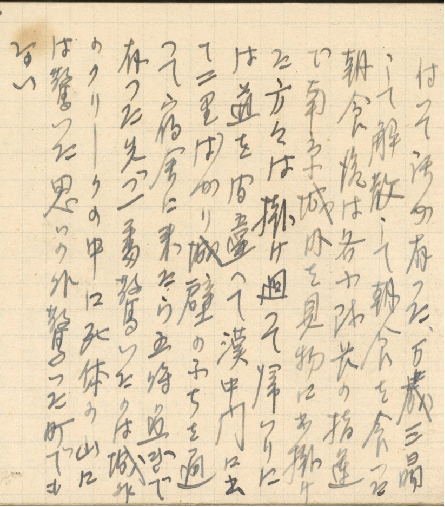 付いて話が有った、万歳三唱
して解散して朝食を食った
朝食後は各小隊長の指導
で南京城外を見物に出掛け
た方々は掛け廻って帰りに
は道を間違へて漢中門に出
て二里ばかり城壁のふちを廻
って宿舎に来たら五時近かで
有った先づ一番驚いたのは城外
のクリークの中に死体の山に
は驚いた思いの外驚いた町でも
ない